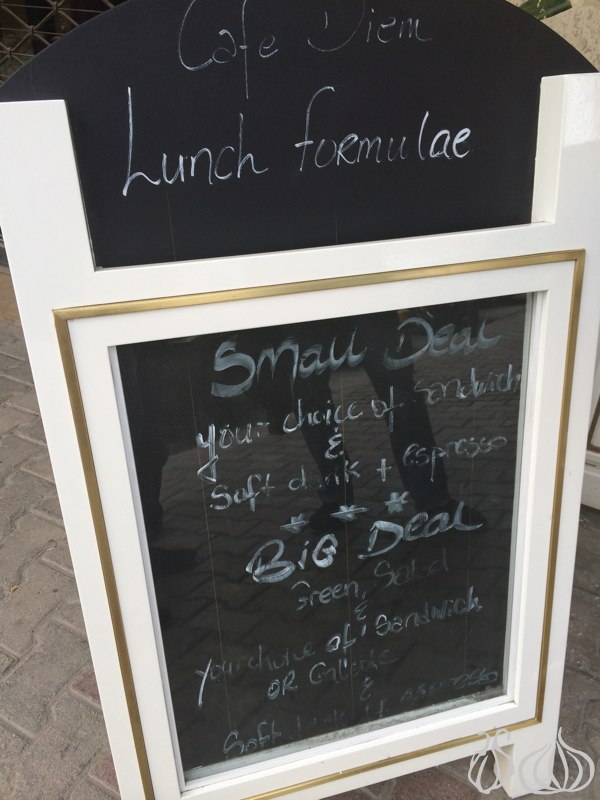 Cafe Diem
Lunch formulae
Small Deal
your choice of Sandwich
&
Soft drink + espresso
* * *
BiG Deal
Green Salad
&
your choice of Sandwich
OR
&
Soft drink + espresso